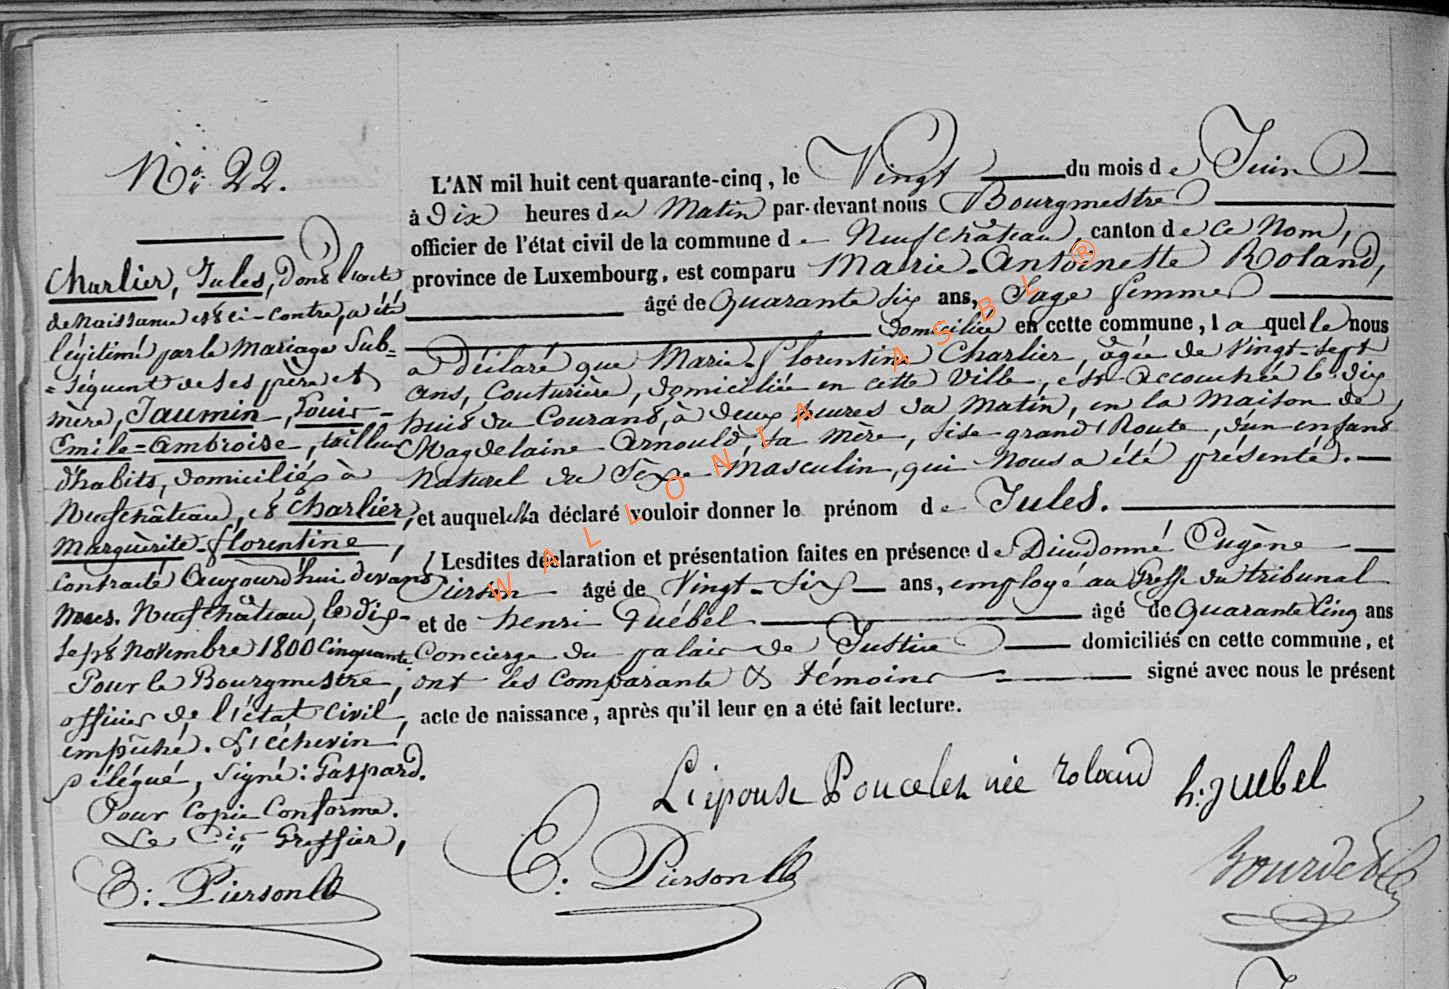 N.° 22.
Charlier, Jules, dont l'acte
de naissance est ci-contre, a été
légitimé par le mariage sub=
=séquent de ses père et
mère, Jaumin, Louis-
Emile=Ambroise, tailleur
d'habits, domiciliés à
Neufchâteau, et Charlier,
Marguèrite-florentine,
contracté Aujourd'hui devant
Nous. Neufchâteau, le dix-
sept Novembre 1800 Cinquante
Pour le Bourgmestre,
officier de l'état Civil,
empêché. L'échevin
délégué, signé: Gaspard.
Pour Copie Conforme.
Le Greffier,
E: Pierson
L'AN mil huit cent quarante-cinq, le Vingt du mois de Juin
à Dix heures du Matin par-devant nous Bourgmestre
officier de l'état civil de la commune de Neufchâteau, canton de ce Nom,
province de Luxembourg, est comparu Marie-Antoinette Roland,
âgé de Quarante six ans, Sage femme
domiciliée en cette commune, laquelle nous
a déclaré que Marie-florentine Charlier, âgée de Vingt-sept
ans, Couturière, domiciliée en cette Ville, est Accouchée le dix
huit du Courant, à deux heures du Matin, en la Maison de
Magdelaine Arnould sa mère, sise grand'Route, d'un enfant
Naturel du Sexe Masculin, qui Nous a été présenté.
et auquel elle a déclaré vouloir donner le prénom de Jules.
Lesdites déclaration et présentation faites en présence de Dieudonné Eugène
Pierson âgé de Vingt-Six ans, employé au Greffe du tribunal
et de henri Guébel âgé de Quarante Cinq ans
Concierge du palais de Justice domiciliés en cette commune, et
ont les Comparante & témoins signé avec nous le présent
acte de naissance, après qu'il leur en a été fait lecture.
L'épouse Poncelet née roland h: guebel
E: Pierson
WALLONIA ASBL ®